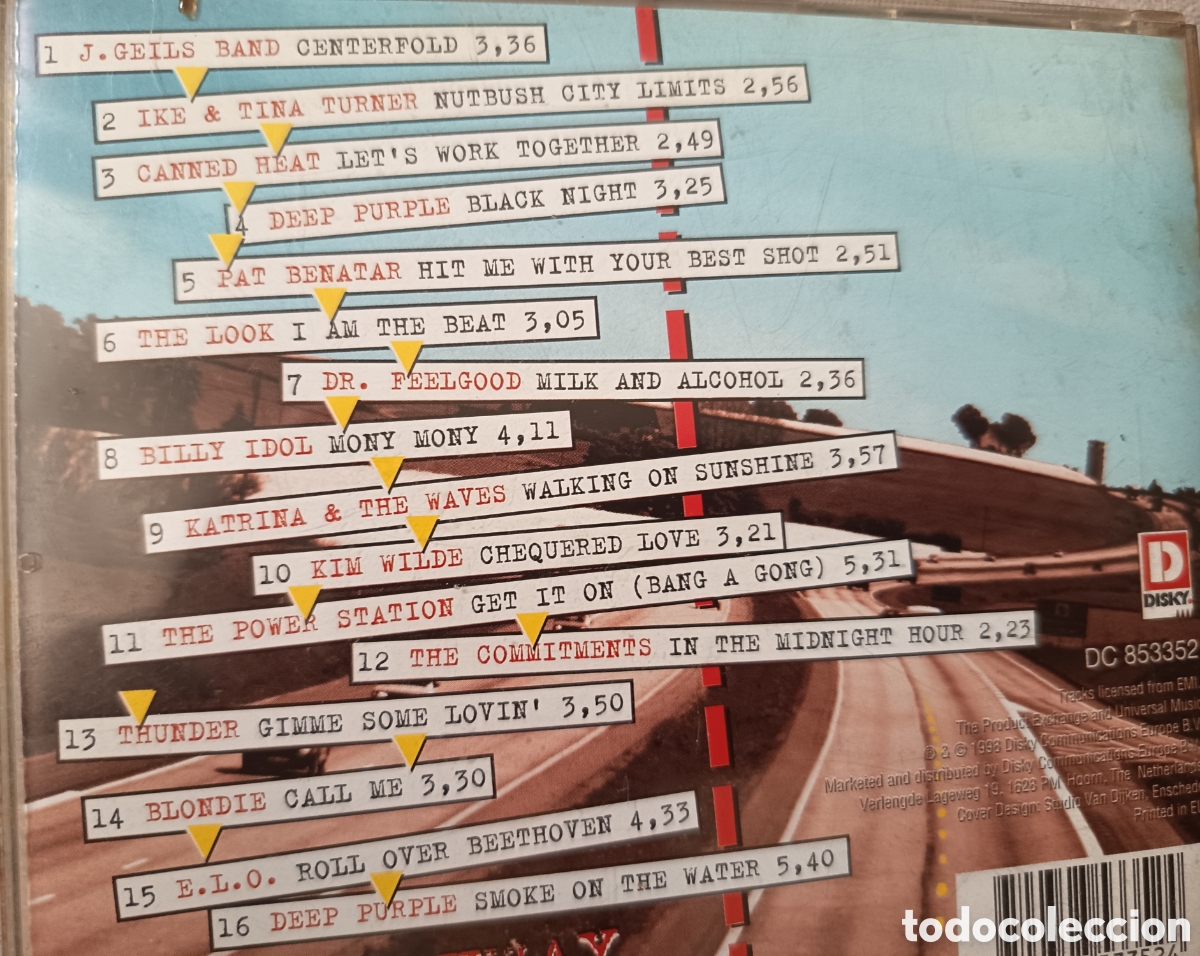 1 J.GEILS BAND CENTERFOLD 3,36
2 IKE & TINA TURNER NUTBUSH CITY LIMITS 2,56
3 CANNED HEAT LET'S WORK TOGETHER 2,49
4 DEEP PURPLE BLACK NIGHT 3,25
5 PAT BENATAR HIT ME WITH YOUR BEST SHOT 2,51
6 THE LOOK I AM THE BEAT 3,05
7 DR. FEELGOOD MILK AND ALCOHOL 2,36
8 BILLY IDOL MONY MONY 4,11
9 KATRINA & THE WAVES WALKING ON SUNSHINE 3,57
10 KIM WILDE CHEQUERED LOVE 3,21
11 THE POWER STATION GET IT ON (BANG A GONG) 5,31
12 THE COMMITMENTS IN THE MIDNIGHT HOUR 2,23
13 THUNDER GIMME SOME LOVIN' 3,50
14 BLONDIE CALL ME 3,30
15 E.L.O. ROLL OVER BEETHOVEN 4,33
16 DEEP PURPLE SMOKE ON THE WATER 5,40
D
DISKY
DC 853352
Tracks licensed from EMI,
The Product Exchange and Universal Music
℗ & © 1998 Disky Communications Europe B.V.
Marketed and distributed by Disky Communications Europe B.V.
Verlengde Lageweg 19, 1628 PM Hoorn, The Netherlands
Cover Design: Studio Van Dijken, Enschede
Printed in E
todocoleccion